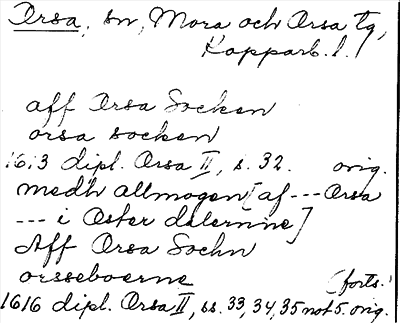 Orsa, sn, Mora och Orsa tg,
Kopparb. l.
aff Orsa Socken
orsa socken
1613 dipl. Orsa II, s. 32. orig.
medh allmogen [af --- Orsa
--- i Øster dalernine]
Aff Orsa Sochn
orsseboerne (forts.)
1616 dipl. Orsa II, ss. 33, 34, 35 not 5. orig.